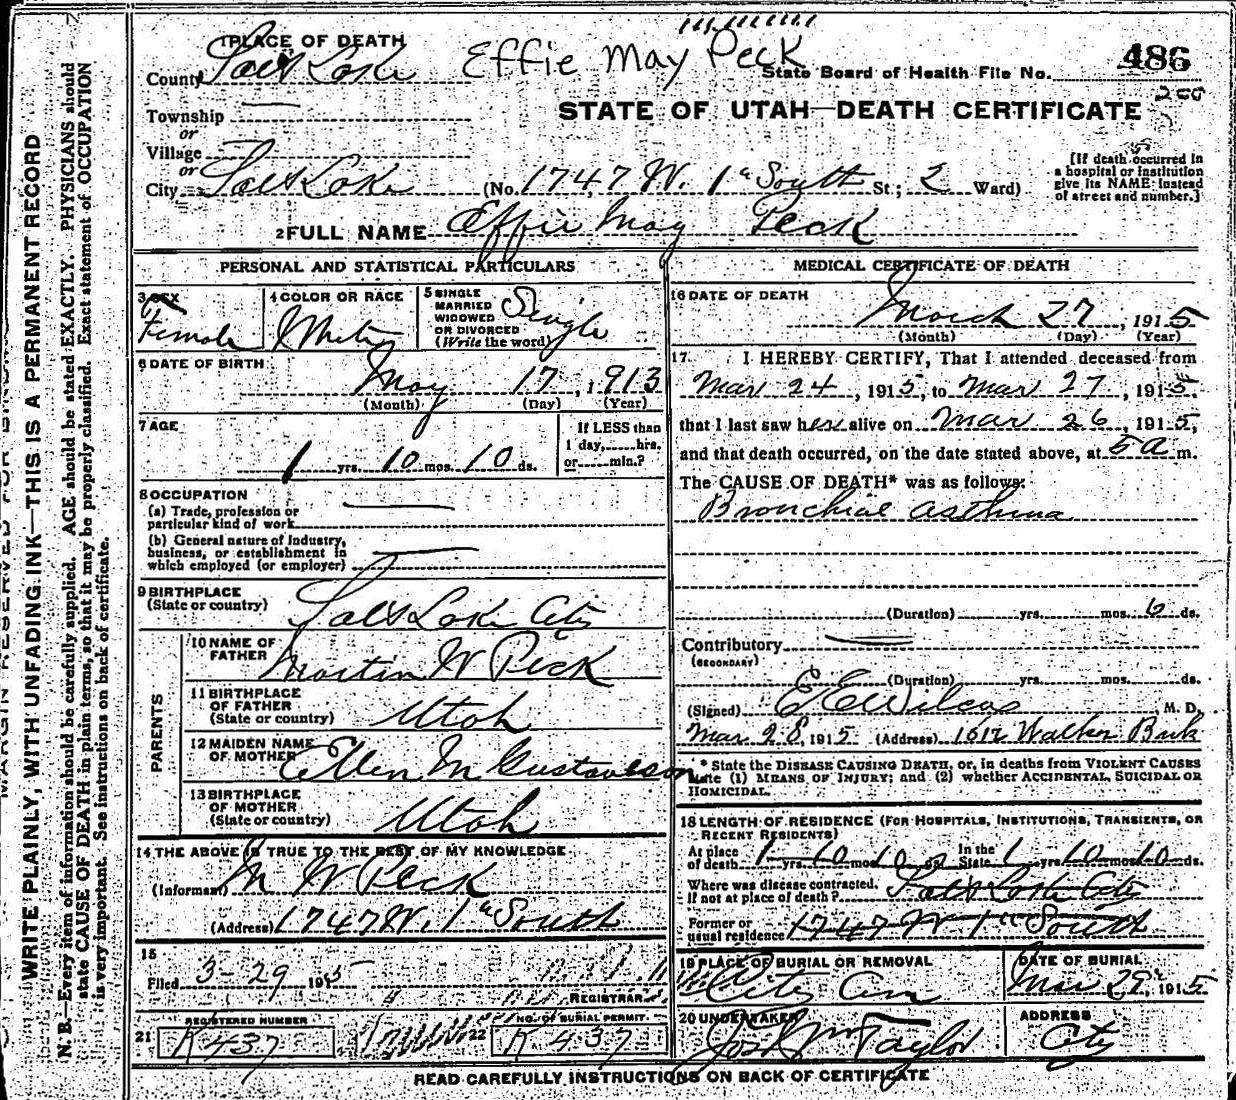 Effie May Peck
1 PLACE OF DEATH
County Salt Lake
State Board of Health File No. 486
200
Township
or
Village
or
STATE OF UTAH—DEATH CERTIFICATE
City Salt Lake (No. 1747 W. 1st South St.; 2 Ward)
[If death occurred in
a hospital or institution
give its NAME instead
of street and number.]
2 FULL NAME Effie May Peck
PERSONAL AND STATISTICAL PARTICULARS
3 SEX
Female
4 COLOR OR RACE
White
5 SINGLE
MARRIED
WIDOWED
OR DIVORCED
(Write the word)
Single
6 DATE OF BIRTH
May 17, 1913
(Month) (Day) (Year)
7 AGE
1 yrs. 10 mos. 10 ds.
If LESS than
1 day, hrs.
or min.?
8 OCCUPATION
(a) Trade, profession or
particular kind of work
(b) General nature of Industry,
business, or establishment in
which employed (or employer)
9 BIRTHPLACE
(State or country) Salt Lake City
PARENTS
10 NAME OF
FATHER Martin W Peck
11 BIRTHPLACE
OF FATHER
(State or country) Utah
12 MAIDEN NAME
OF MOTHER Ellen M Gustaveson
13 BIRTHPLACE
OF MOTHER
(State or country) Utah
14 THE ABOVE IS TRUE TO THE BEST OF MY KNOWLEDGE
(Informant) M W Peck
(Address) 1747 W. 1st South
15
Filed 3-29 1915
REGISTRAR
REGISTERED NUMBER
21 K 437
NO. OF BURIAL PERMIT
22 K 437
MEDICAL CERTIFICATE OF DEATH
16 DATE OF DEATH
March 27, 1915
(Month) (Day) (Year)
17. I HEREBY CERTIFY, That I attended deceased from
Mar 24, 1915, to Mar 27, 1915,
that I last saw her alive on Mar 26, 1915,
and that death occurred, on the date stated above, at 5 a m.
The CAUSE OF DEATH* was as follows:
Bronchial asthma
(Duration) yrs. mos. 6 ds.
Contributory
(SECONDARY)
(Duration) yrs. mos. ds.
(Signed) E E Wilcox, M. D.
Mar 28, 1915 (Address) 1612 Walker Bnk
* State the DISEASE CAUSING DEATH, or, in deaths from VIOLENT CAUSES
state (1) MEANS OF INJURY; and (2) whether ACCIDENTAL, SUICIDAL OR
HOMICIDAL.
18 LENGTH OF RESIDENCE (FOR HOSPITALS, INSTITUTIONS, TRANSIENTS, OR
RECENT RESIDENTS)
At place
of death 1 yrs. 10 mos. 10 ds. In the
State 1 yrs. 10 mos. 10 ds.
Where was disease contracted,
if not at place of death? Salt Lake City
Former or
usual residence 1747 W 1st South
19 PLACE OF BURIAL OR REMOVAL
City Cem
DATE OF BURIAL
Mar 29, 1915
20 UNDERTAKER
Jos Wm Taylor
ADDRESS
City
READ CAREFULLY INSTRUCTIONS ON BACK OF CERTIFICATE
WRITE PLAINLY, WITH UNFADING INK—THIS IS A PERMANENT RECORD
N. B.—Every item of information should be carefully supplied. AGE should be stated EXACTLY. PHYSICIANS should
state CAUSE OF DEATH in plain terms, so that it may be properly classified. Exact statement of OCCUPATION
is very important. See instructions on back of certificate.